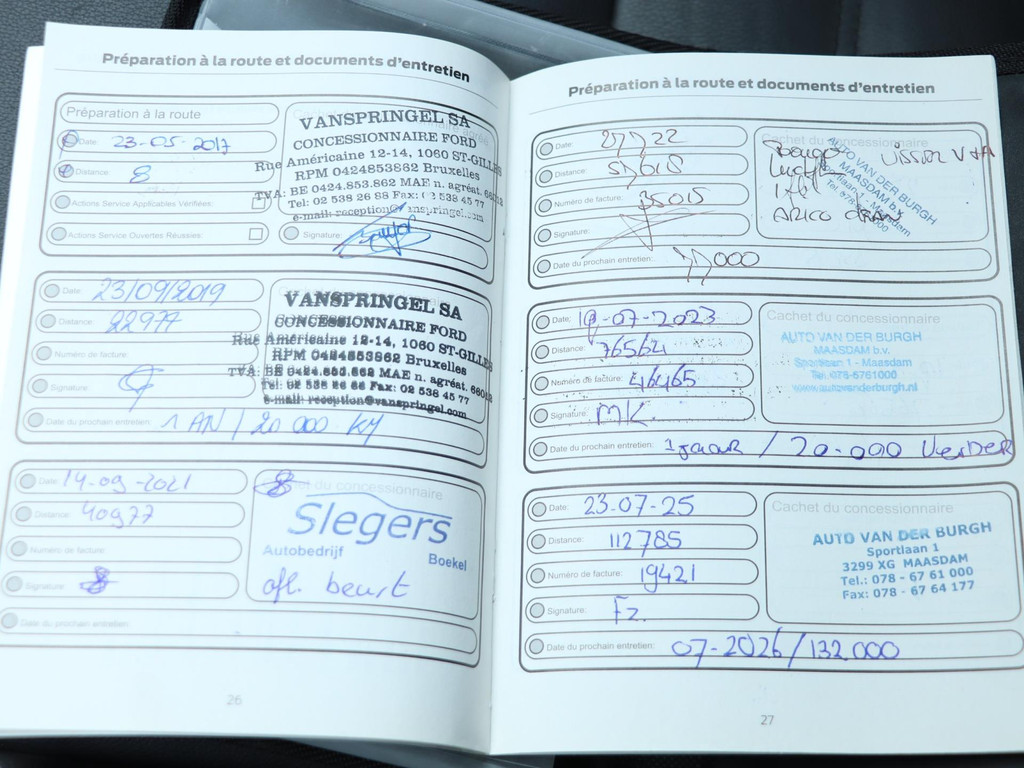 Préparation à la route et documents d'entretien
Préparation à la route
Date: 23-05-2017
Distance: 8
Actions Service Applicables Vérifiées:
Actions Service Ouvertes Réussies:
Signature:
VANSPRINGEL SA
CONCESSIONNAIRE FORD
Rue Américaine 12-14, 1060 ST-GILLES
RPM 0424853862 Bruxelles
TVA: BE 0424.853.862 MAE n. agréat.
Tel: 02 538 26 88 Fax: 02 538 45 77
e-mail: reception@vanspringel.com
Date: 23/09/2019
Distance: 22977
Numéro de facture:
Signature:
Date du prochain entretien: 1 AN / 20 000 KM
VANSPRINGEL SA
CONCESSIONNAIRE FORD
Rue Américaine 12-14, 1060 ST-GILLES
RPM 0424853862 Bruxelles
TVA: BE 0424.853.862 MAE n. agréat.
Fax: 02 538 45 77
e-mail: reception@vanspringel.com
Date: 14-09-2021
Distance: 40977
Numéro de facture:
Signature:
Date du prochain entretien:
Slegers
Autobedrijf
Boekel
afl. beurt
26
Préparation à la route et documents d'entretien
Date:
Distance:
Numéro de facture: 35015
Signature:
Date du prochain entretien:
Cachet du concessionnaire
AUTO VAN DER BURGH
MAASDAM b.v.
Date: 19-07-2023
Distance: 76564
Numéro de facture: 46465
Signature: MK.
Date du prochain entretien: 1 jaar / 20.000 Verder
Cachet du concessionnaire
AUTO VAN DER BURGH
MAASDAM b.v.
Sportlaan 1 - Maasdam
Tel. 078-6761000
www.autovanderburgh.nl
Date: 23-07-25
Distance: 112785
Numéro de facture: 19421
Signature: Fz.
Date du prochain entretien: 07-2026/132.000
Cachet du concessionnaire
AUTO VAN DER BURGH
Sportlaan 1
3299 XG MAASDAM
Tel.: 078 - 67 61 000
Fax: 078 - 67 64 177
27